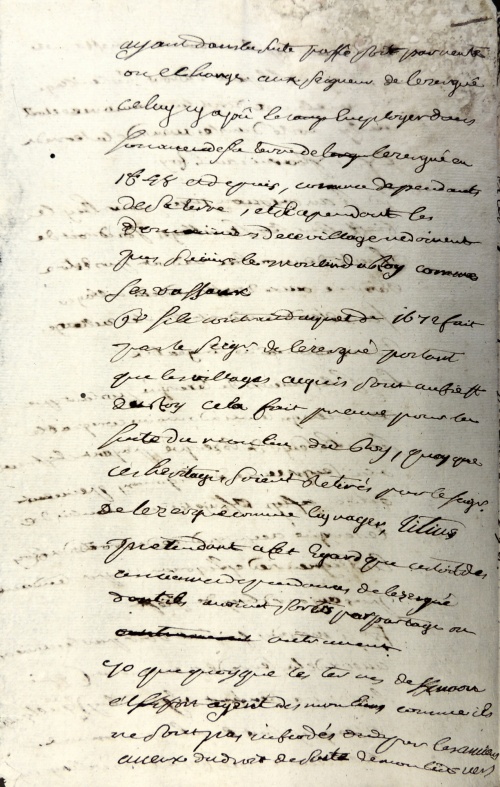 ayant dans la suite passé soit par vente
ou echange aux seigneur de lezergué
celuy cy a joü le employer dans
terre de lezergué en
et depuis, comme dependants
de sa terre, et cependant les
Domainiers de ce village ne doivent
pas suivre le moulin du Roy comme
ses vassaux
9° si le contract d'acquet de 1672 fait
par le seigr de lezergué portant
que les villages acquis sont au fieff
du Roy cela fait preuve pour la
suitte du moulin du Roy, quoy que
ces heritages soient retirés par le seigr
de lezergué comme lignager, Titius
pretendant a cet egard que cetoit des
anciennes dependances de lezergué
dont ils avoient sortis par partage ou
autrement
10 que quoique les terres de
et ayent des moulins comme ils
ne sont pas infeodés par les anciens
aveux du droit de suitte de moulin vers